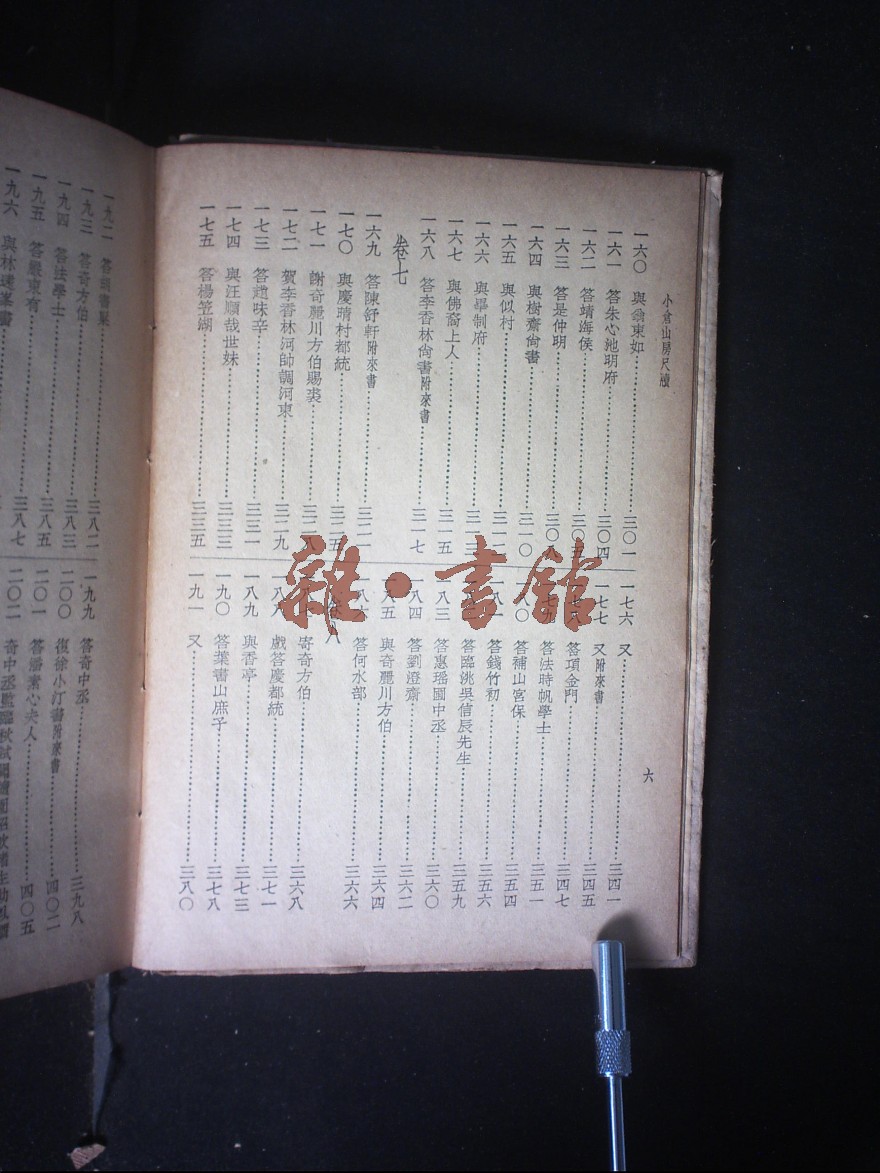 小倉山房尺牘
六
一六〇 與翁東如 三〇一
一六一 答朱心池明府 三〇四
一六二 答蜻海侯 三〇五
一六三 答是仲明 三〇八
一六四 與樹齋尙書 三一〇
一六五 與似村 三一二
一六六 與畢制府 三一三
一六七 與佛裔上人 三一五
一六八 答李香林尙書附來書 三一七
卷七
一六九 答陳舒軒附來書 三二一
一七〇 與慶晴村都統 三二五
一七一 謝奇麗川方伯賜裘 三二八
一七二 賀李香林河帥調河東 三二九
一七三 答趙味辛 三三一
一七四 與汪順哉世妹 三三三
一七五 答楊笠湖 三三五
一七六 又 三四一
一七七 又附來書 三四五
答項金門 三四七
答法時帆學士 三五一
八〇 答補山宮保 三五四
八一 答錢竹初 三五六
答臨洮吳信辰先生 三五九
一八三 答惠瑶圃中丞 三六〇
一八四 答劉澄齋 三六二
八五 與奇麗川方伯 三六四
一八六 答何水部 三六六
八
寄奇方伯 三六八
一八八 戲答慶都統 三七一
一八九 與香亭 三七三
一九〇 答葉書山庶子 三七八
一九一 又 三八〇
一九二 書巢 三八二
一九三 答奇方伯 三八三
一九四 答法學士 三八五
一九五 答嚴東有 三八七
一九六 與林
一九九 答奇中丞 三九八
二〇〇 復徐小汀書附來書 四〇二
二〇一 答潘素心夫人 四〇五
二〇二 奇中丞監臨秋試
雜·書館